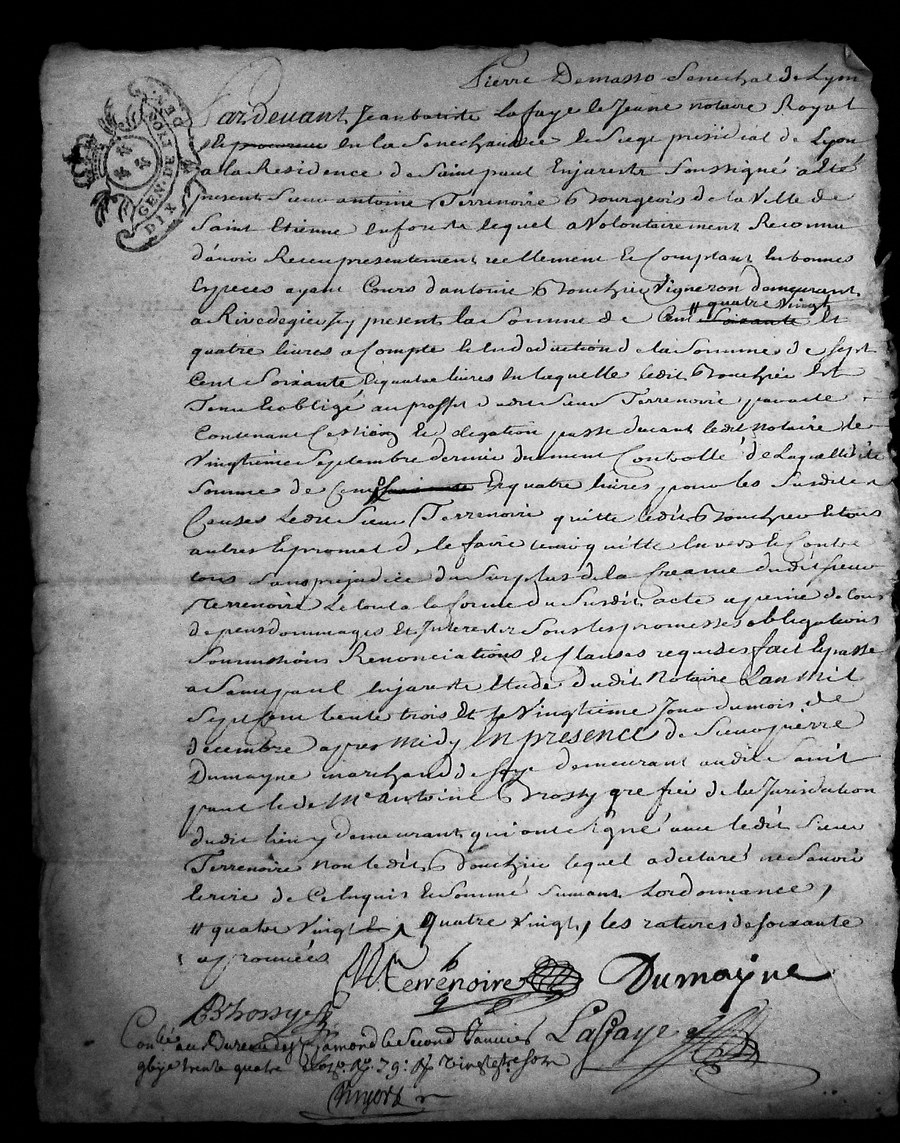 Pierre Demasso Senechal de Lyon
GEN. DE LYON
DIX DEN.
Pardevant Jean batiste Lafaye le Jeune notaire Royal
et procureur en la Senechaussée et Siege présidial de Lyon
a la Residence de Saint paul Enjareste Soussigné a êté
present Sieur antoine Terrenoire Bourgeois de la Ville de
Saint Etienne en forests lequel a Volontairement Reconnu
d'avoir Receu presentement reellement et Comptant en bonnes
Especes ayant Cours d'antoine Bouchrie Vigneron demeurant
a Rivedegier Jcy present la Somme de Cent Soixante et
// quatre Vingt
quatre livres a Compte et en deduction de la Somme de Sept
Cent Soixante et quatre livres en laquelle ledit Bouchrie Est
Tenu et obligé au proffit dudit Sieur Terrenoire par acte
Contenant Cession et delegation passé devant ledit notaire le
Vingtieme Septembre dernier duement Controllé de Laquelle dite
Somme de Cent Soixante Et quatre livres pour les Susdites
Causes Ledit Sieur Terrenoire quitte ledit Bouchrie et tous
autres Et promet de le faire tenir quitte Envers et Contre
tous Sans prejudice du Surplus de la Creance dudit Sieur
Terrenoire Le tout a la forme du Susdit acte a peine de tous
depens dommages Et Interests Sous les promesses obligations
Soumissions Renonciations et Clauses requises fait Et passé
a Saint paul Enjareste Etude dudit Notaire L'an Mil
Sept Cent trente trois Et le Vingtieme Jour du mois de
decembre apres Midy En presence de Sieur pierre
Dumayne marchand de Soye demeurant audit Saint
paul et de Me antoine Brossy greffier de la Jurisdiction
dudit lieu y demeurant qui ont Signé avec ledit Sieur
Terrenoire non ledit Bouchrie lequel a declaré ne Savoir
Ecrire de Ce Enquis et Sommé Suivant Lordonnance,
// quatre Vingt & quatre Vingt, les ratures de Soixante
approuvées
Terrenoire Dumayne
Brossy
Lafaye
Conllé au Bureau de St Chamond le Second Janvier
trente quatre